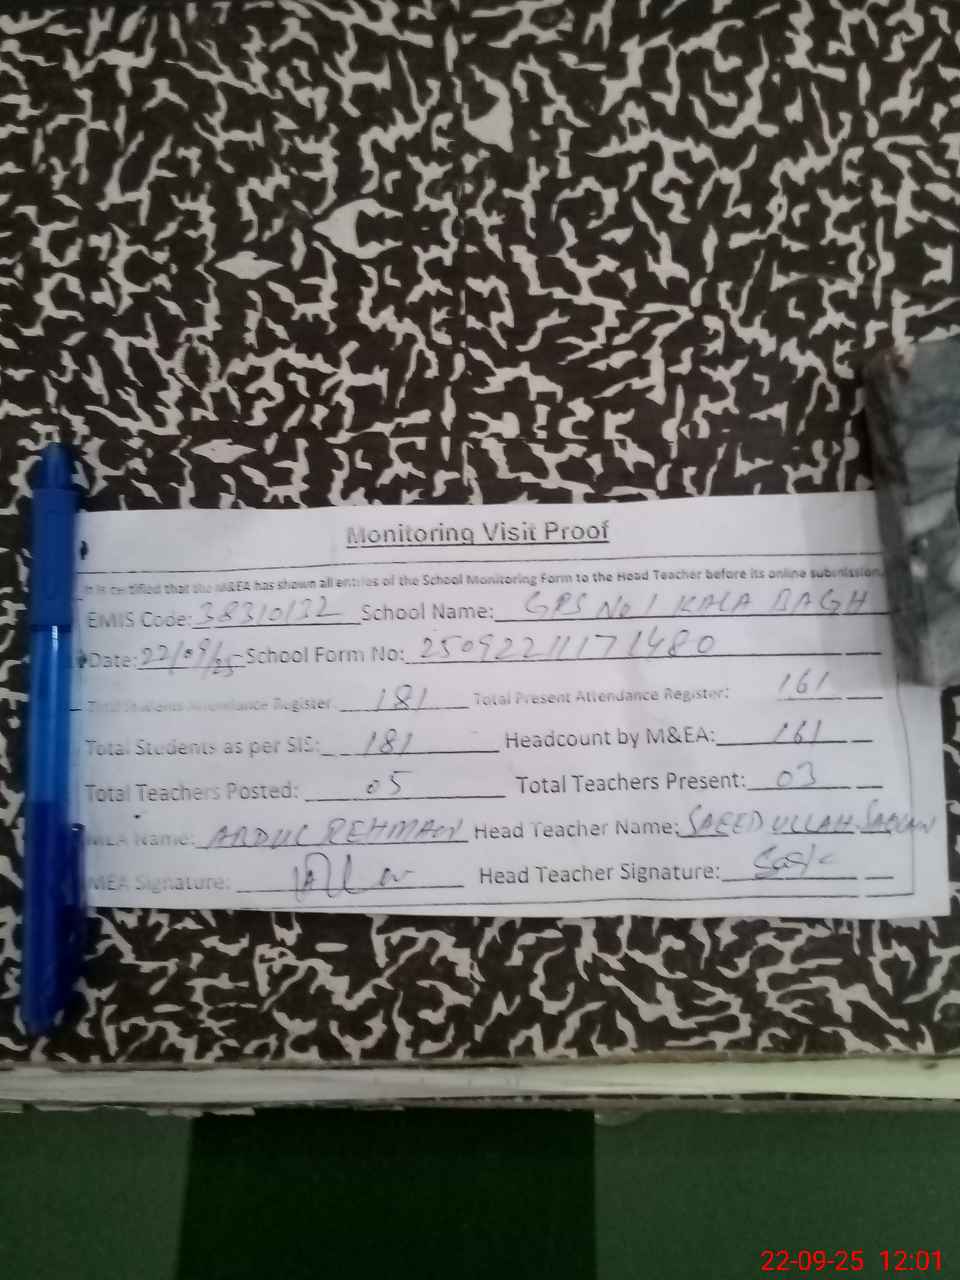 Monitoring Visit Proof
It is certified that the M&EA has shown all entries of the School Monitoring Form to the Head Teacher before its online submission.
EMIS Code: 38310132 School Name: GPS No 1 KALA BAGH
Date: 22/09/25 School Form No: 25092211171480
Total Students Attendance Register: 181 Total Present Attendance Register: 161
Total Students as per SIS: 181 Headcount by M&EA: 161
Total Teachers Posted: 05 Total Teachers Present: 03
MEA Name: ABDUL REHMAN Head Teacher Name: SAEED ULLAH
MEA Signature: Head Teacher Signature:
22-09-25 12:01